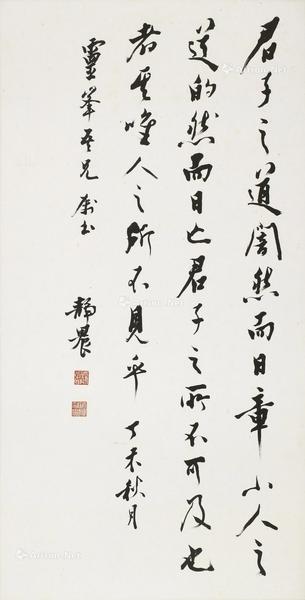 君子之道闇然而日章小人之
道的然而日亡君子之所不可及也
者其唯人之所不見乎 丁未秋月
靈峯吾兄 秉書
靜農